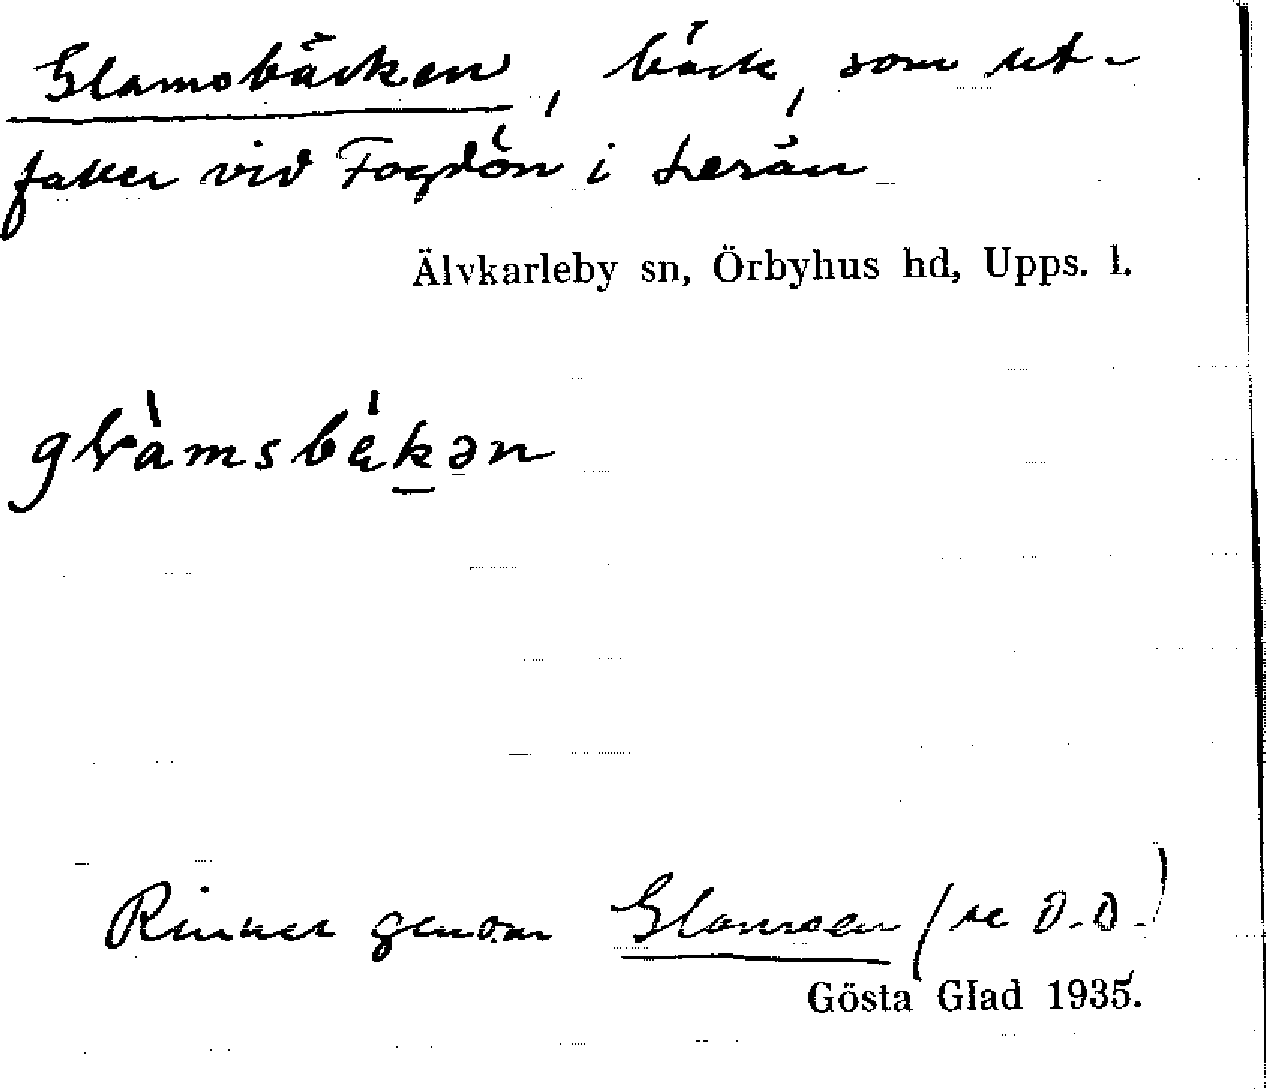 Glamsbäcken, bäck, som ut-
faller vid Fogdön i Lerån
Älvkarleby sn, Örbyhus hd, Upps. l.
glàmsbäkən
Rinner genom Glamsen (se O.D.)
Gösta Glad 1935.